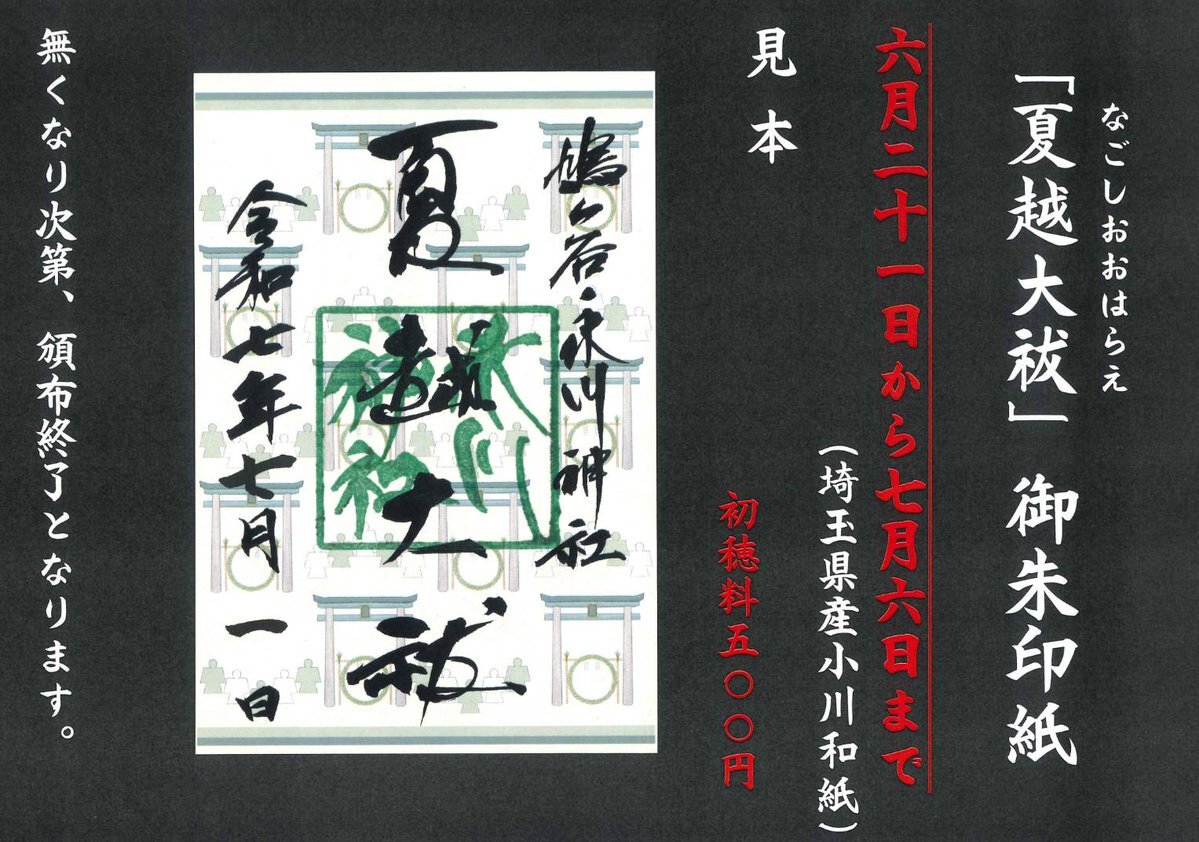 なごしおおはらえ
「夏越大祓」御朱印紙
六月二十一日から七月六日まで
（埼玉県産小川和紙）
見本
初穂料五〇〇円
鳩ヶ谷氷川神社
夏越大祓
氷川
神社
令和七年七月一日
無くなり次第、頒布終了となります。